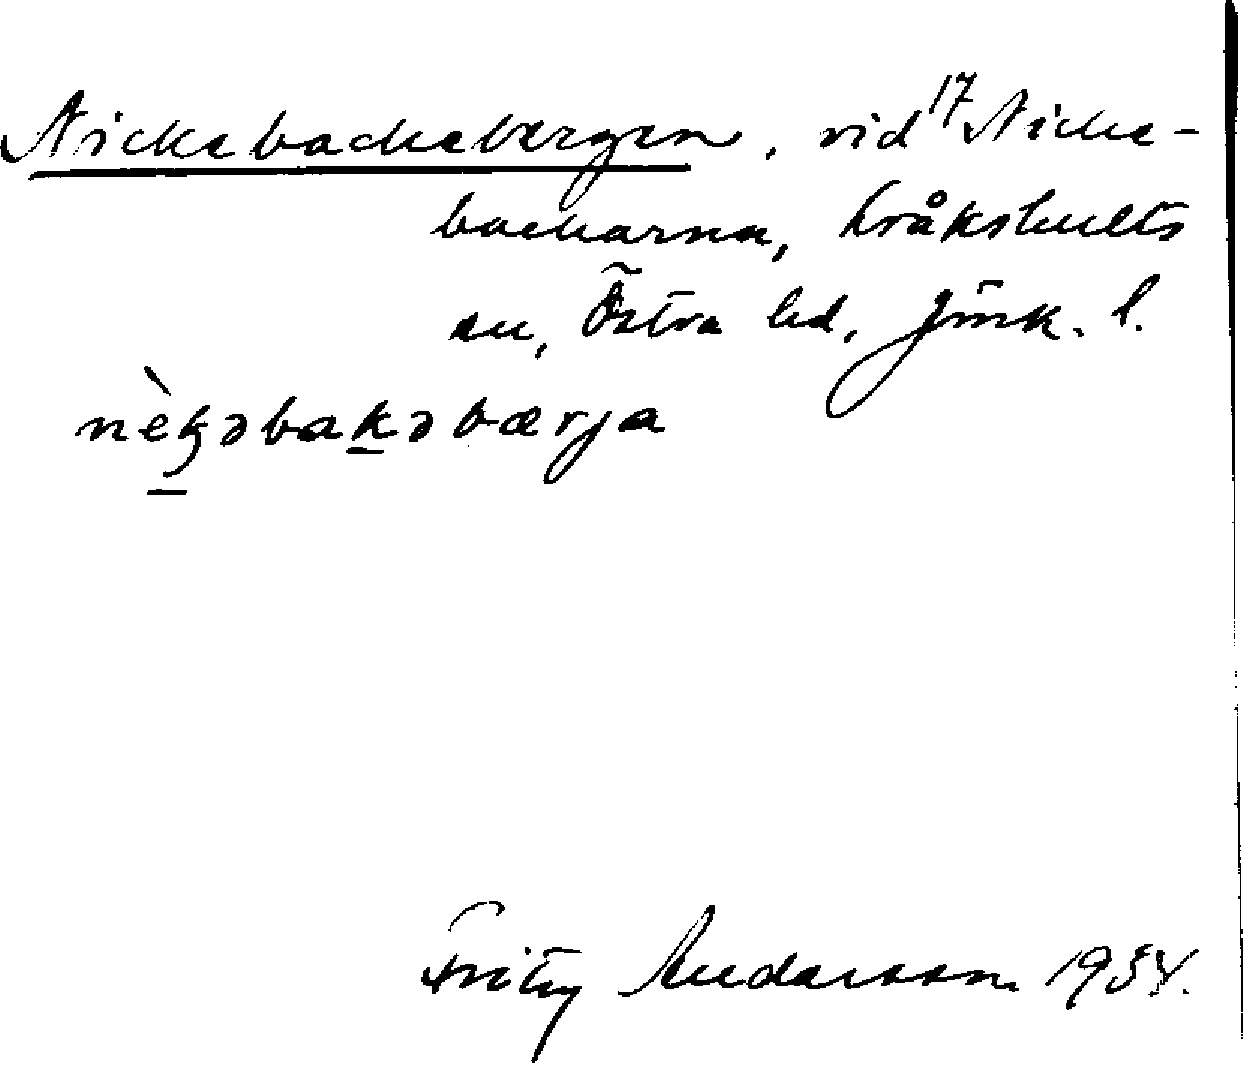 Nickebackebergen, vid 17 Nicke-
backarna, Kråkshults
sn, Östra hd, Jönk. l.
nèkəbakəbærja
Fritz Andersson 1954.